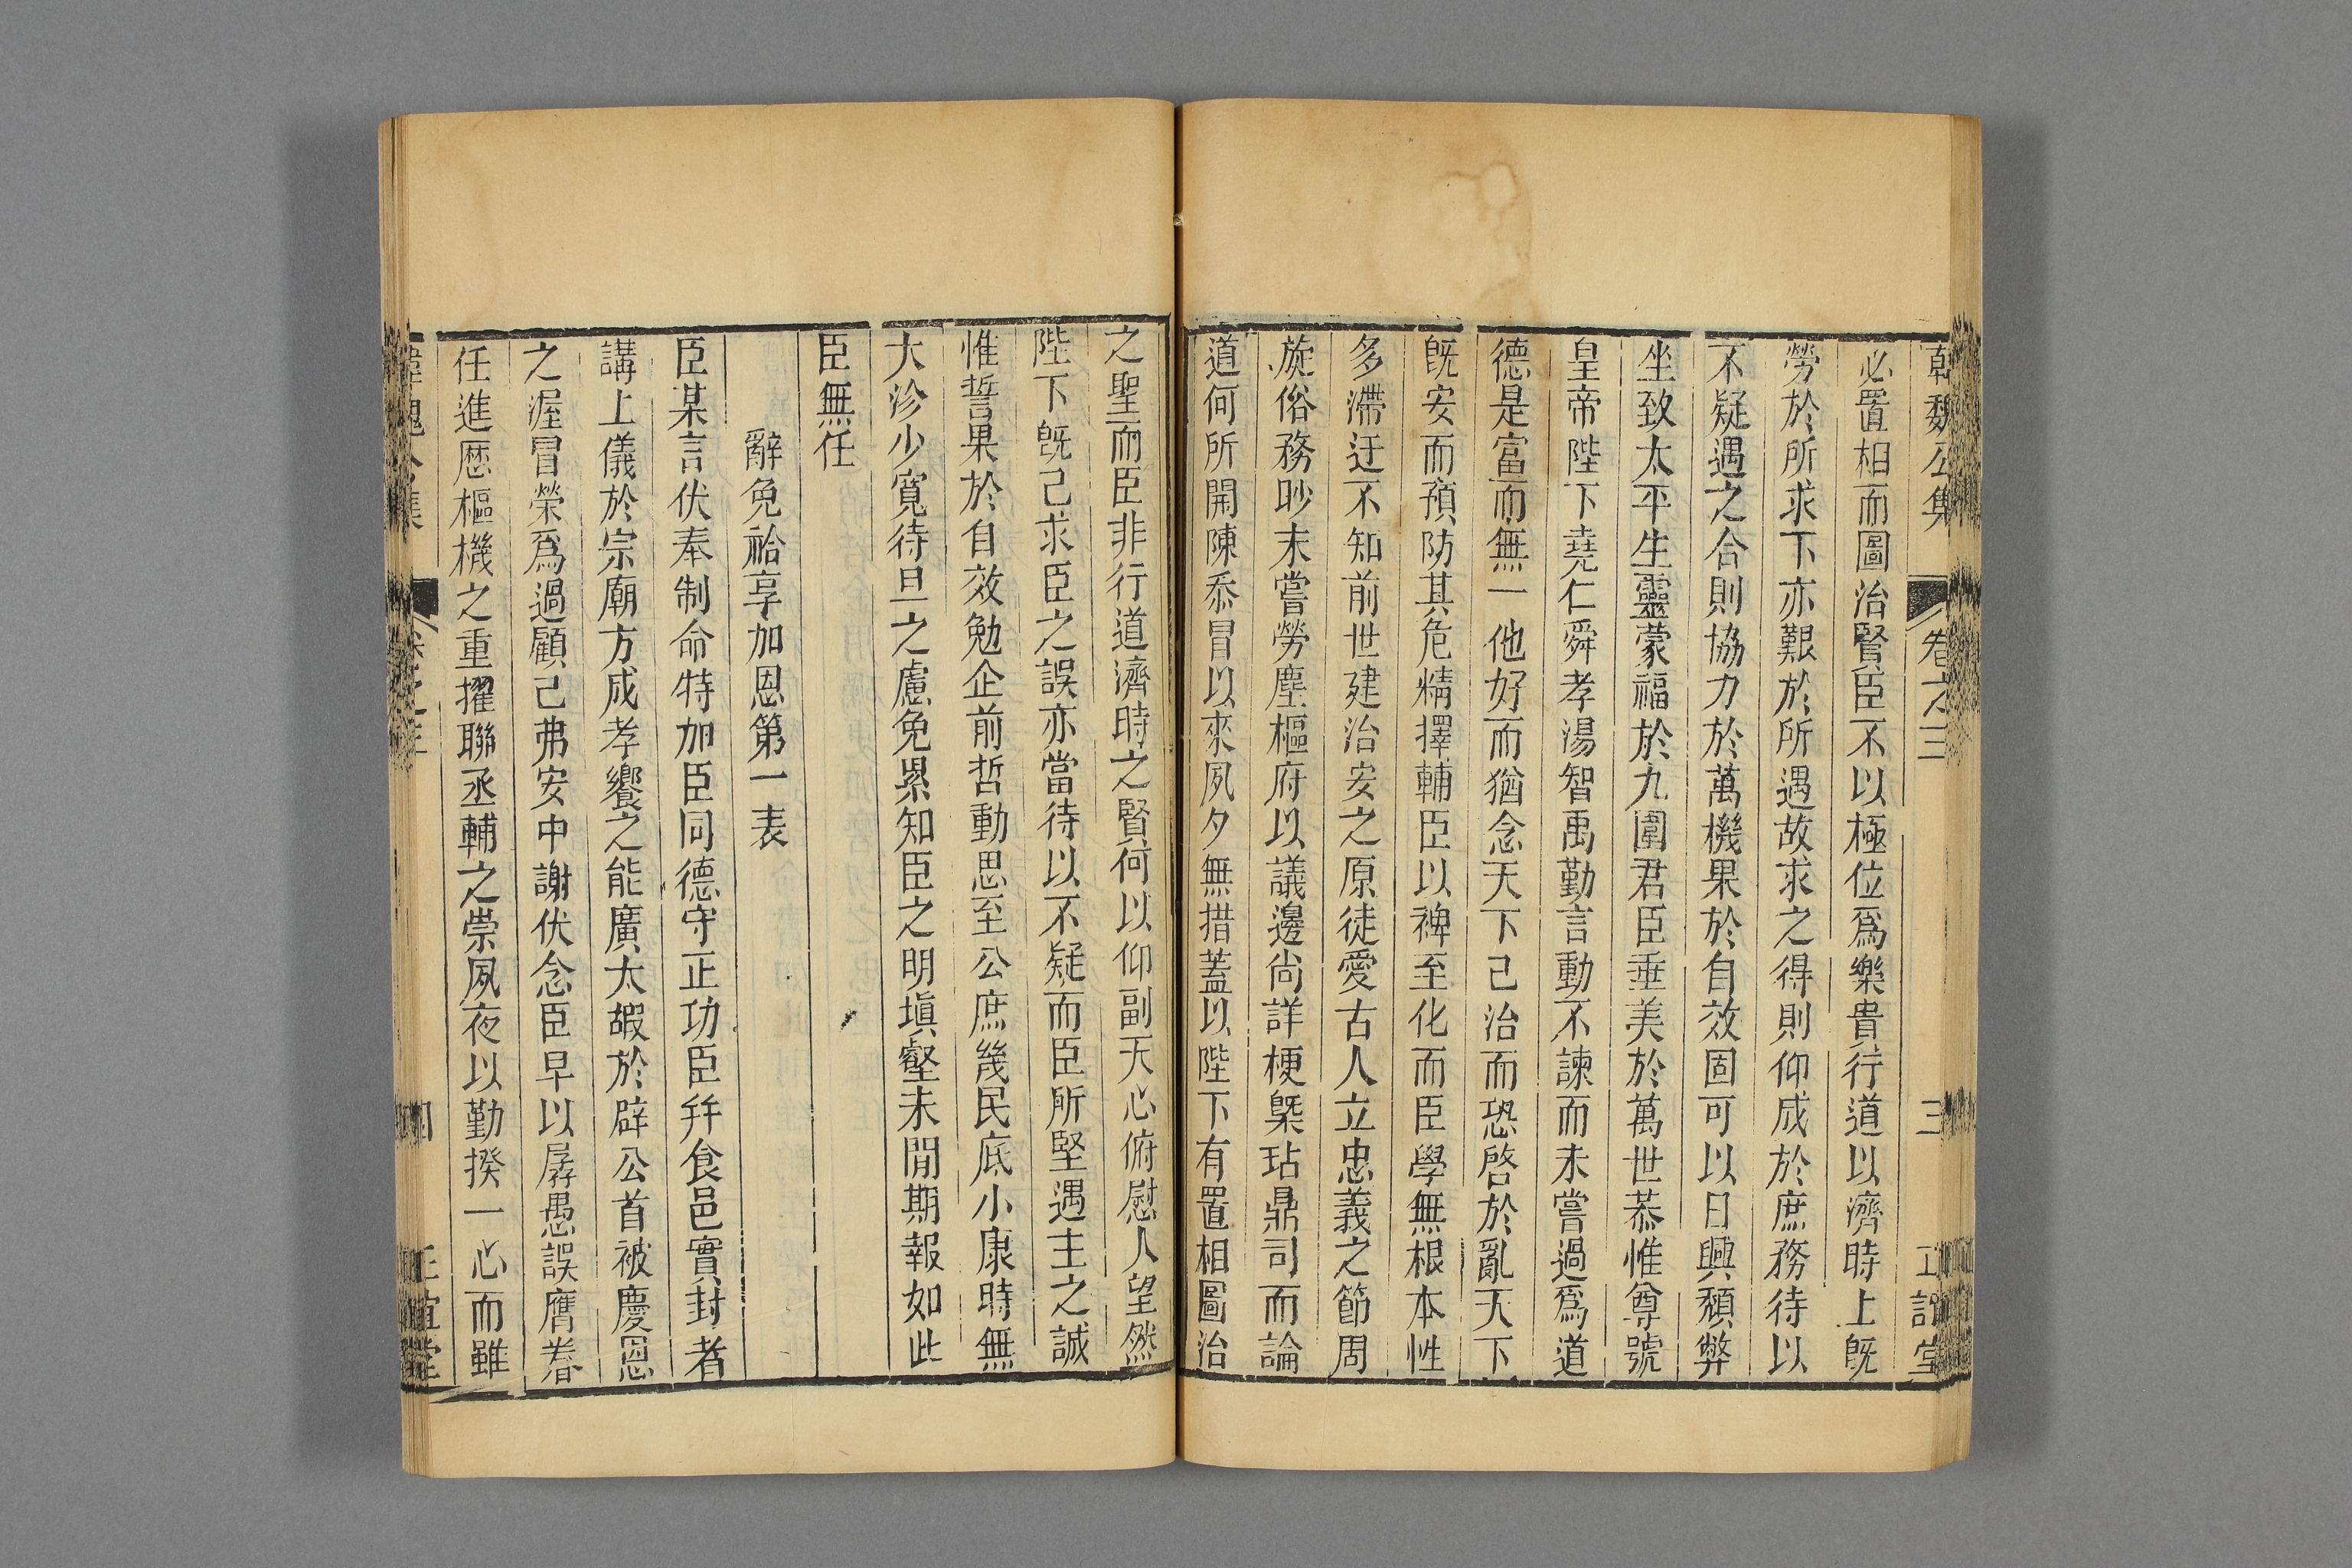 韓魏公集 卷之三 三 正誼堂
必置相而圖治賢臣不以極位爲樂貴行道以濟時上旣
勞於所求下亦艱於所遇故求之得則仰成於庶務待以
不疑遇之合則協力於萬機果於自效固可以日興頹弊
坐致太平生靈蒙福於九圍君臣垂美於萬世恭惟尊號
皇帝陛下堯仁舜孝湯智禹勤言動不諫而未嘗過爲道
德是富而無一他好而猶念天下已治而恐啓於亂天下
旣安而預防其危精擇輔臣以裨至化而臣學無根本性
多滯迂不知前世建治安之原徒愛古人立忠義之節周
旋俗務眇末嘗勞塵樞府以議邊尙詳梗槩玷鼎司而論
道何所開陳忝冒以來夙夕無措蓋以陛下有置相圖治
之聖而臣非行道濟時之賢何以仰副天心俯慰人望然
陛下旣已求臣之誤亦當待以不疑而臣所堅遇主之誠
惟誓果於自效勉企前哲動思至公庶幾民底小康時無
大沴少寬待旦之慮免累知臣之明塡壑未閒期報如此
臣無任
辭免祫享加恩第一表
臣某言伏奉制命特加臣同德守正功臣幷食邑實封者
講上儀於宗廟方成孝饗之能廣太嘏於辟公首被慶恩
之渥冒榮爲過顧己弗安中謝伏念臣早以孱愚誤膺眷
任進歷樞機之重擢聯丞輔之崇夙夜以勤揆一心而雖
韓魏公集 卷之三 四 正誼堂